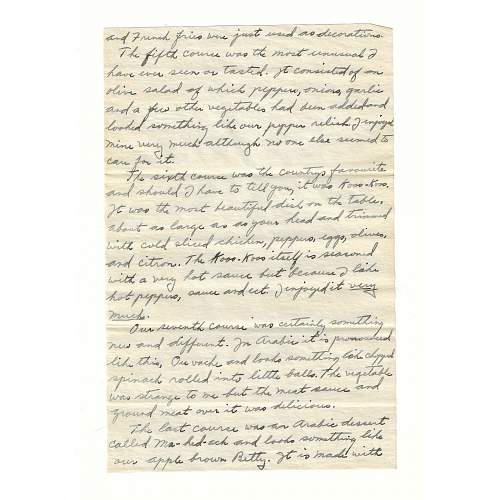 and French fries were just used as decorations.
The fifth course was the most unusual I
have ever seen or tasted. It consisted of an
olive salad of which peppers, onions, garlic
and a few other vegetables had been added and
looked something like our pepper relish. I enjoyed
mine very much although no one else seemed to
care for it.
The sixth course was the countrys favourite
and should I have to tell you, it was Koos-Koos.
It was the most beautiful dish on the table,
about as large as as your head and trimmed
with cold sliced chicken, peppers, eggs, olives,
and citron. The Koos-Koos itself is seasoned
with a very hot sauce but because I like
hot peppers, sauce and ect. I enjoyed it very
much.
Our seventh course was certainly something
new and different. In Arabic it is pronounced
like this, Ou vache and looks something like chopped
spinach rolled into little balls. The vegetable
was strange to me but the meat sauce and
ground meat over it was delicious.
The last course was an Arabic dessert
called Ma-hed-ach and looks something like
our apple brown Betty. It is made with